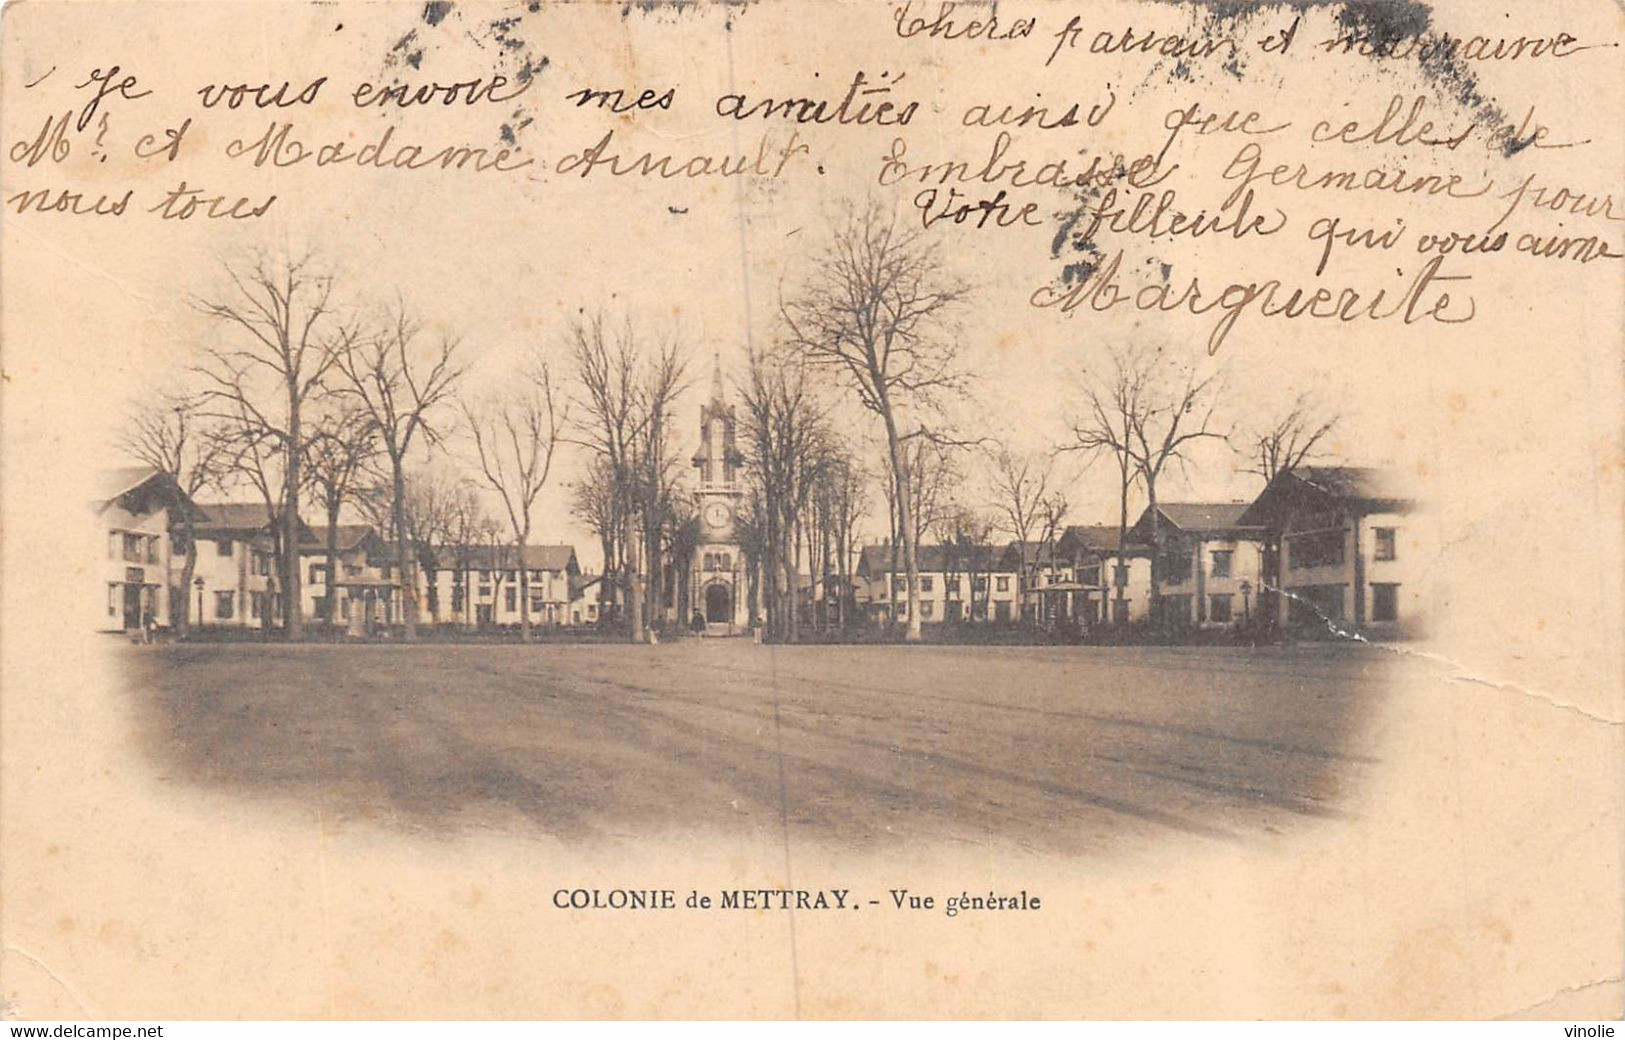 Chers parrain et marraine
Je vous envoie mes amitiés ainsi que celles de
Mr. et Madame Arnault. Embrasse Germaine pour
nous tous
Votre filleule qui vous aime
Marguerite
COLONIE de METTRAY. - Vue générale
www.delcampe.net
vinolie